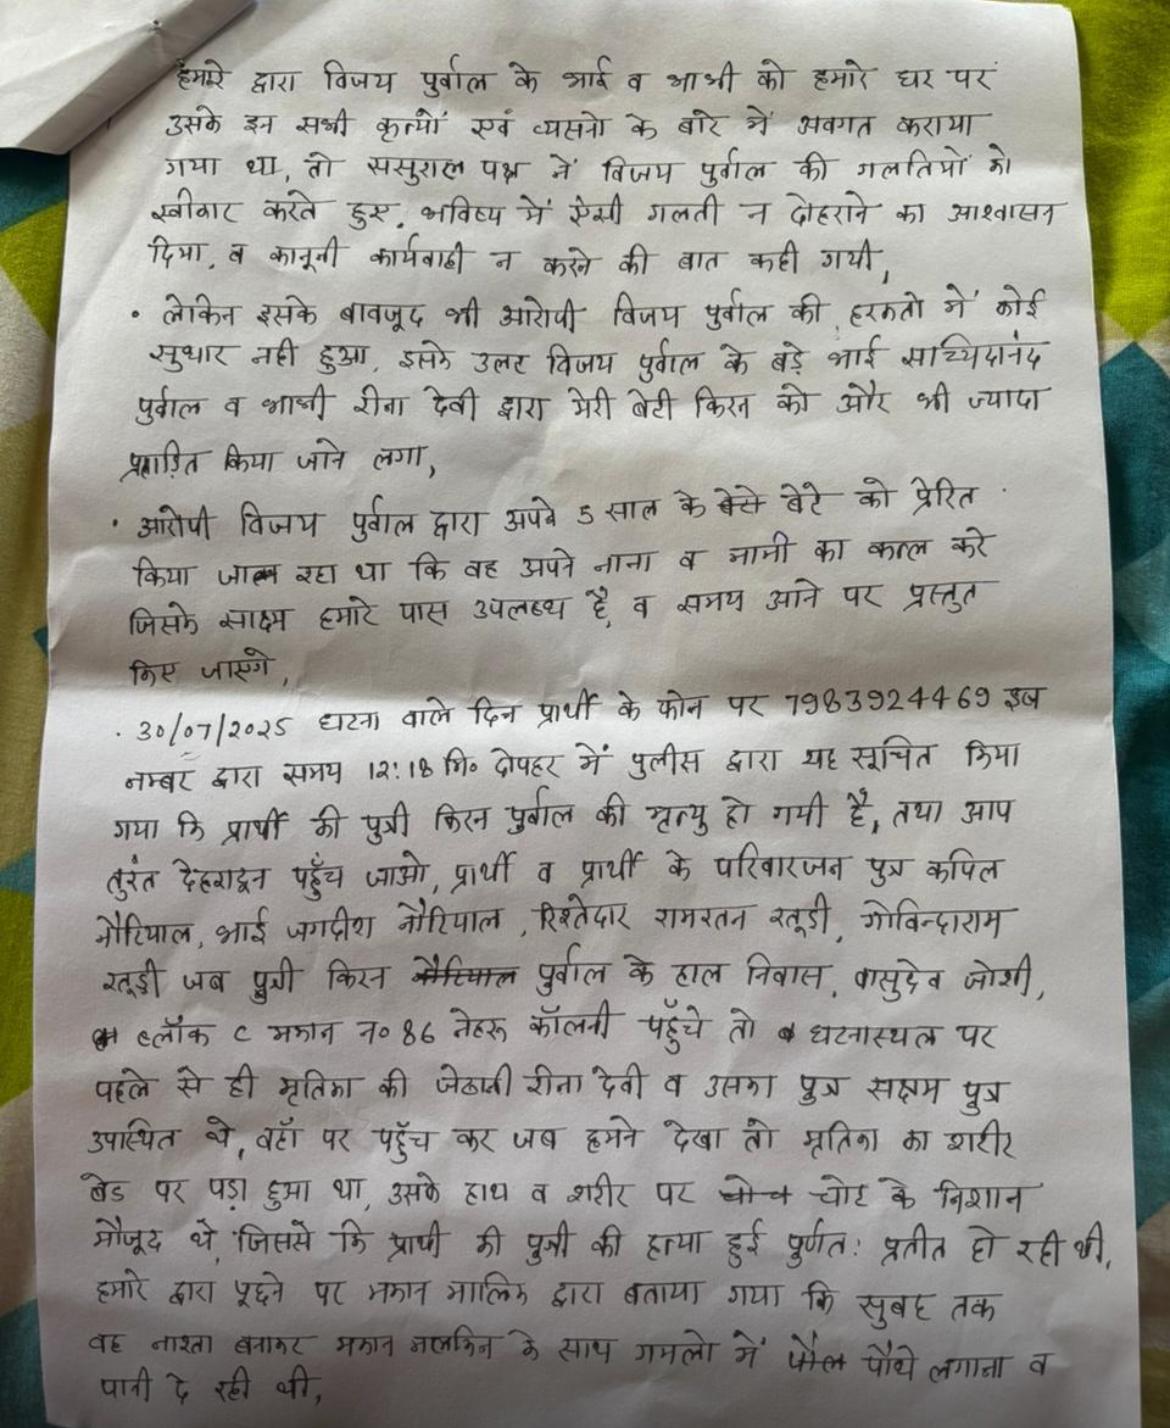 हमारे द्वारा विजय पुर्वाल के भाई व भाभी को हमारे घर पर
उसके इन सभी कृत्यों एवं व्यसनो के बारे में अवगत कराया
गया था, तो ससुराल पक्ष नें विजय पुर्वाल की गलतियों को
स्वीकार करते हुए, भविष्य में ऐसी गलती न दोहराने का आश्वासन
दिया, व कानूनी कार्यवाही न करने की बात कही गयी,
• लेकिन इसके बावजूद भी आरोपी विजय पुर्वाल की हरकतो में कोई
सुधार नही हुआ, इसके उलट विजय पुर्वाल के बड़े भाई सच्चिदानंद
पुर्वाल व भाभी रीना देवी द्वारा मेरी बेटी किरन को और भी ज्यादा
प्रताड़ित किया जाने लगा,
• आरोपी विजय पुर्वाल द्वारा अपने 5 साल के बेटे को प्रेरित
किया जा रहा था कि वह अपने नाना व नानी का कत्ल करे
जिसके साक्ष्य हमारे पास उपलब्ध है, व समय आने पर प्रस्तुत
किए जाएंगे,
. 30/07/2025 घटना वाले दिन प्रार्थी के फोन पर 7983924469 इस
नम्बर द्वारा समय 12:18 मि० दोपहर में पुलीस द्वारा यह सूचित किया
गया कि प्रार्थी की पुत्री किरन पुर्वाल की मृत्यु हो गयी है, तथा आप
तुरंत देहरादून पहुँच जाओ, प्रार्थी व प्रार्थी के परिवारजन पुत्र कपिल
नौटियाल, भाई जगदीश नौटियाल, रिश्तेदार रामरतन रतूड़ी, गोविन्दाराम
रतूड़ी जब पुत्री किरन नौटियाल पुर्वाल के हाल निवास, वासुदेव जोशी,
ब्लॉक C मकान न० 86 नेहरू कॉलनी पहुँचे तो घटनास्थल पर
पहले से ही मृतिका की जेठानी रीना देवी व उसका पुत्र सक्षम पुत्र
उपस्थित थे, वहाँ पर पहुँच कर जब हमने देखा तो मृतिका का शरीर
बेड पर पड़ा हुआ था, उसके हाथ व शरीर पर चोट के निशान
मौजूद थे, जिससे कि प्रार्थी की पुत्री की हत्या हुई पुर्णतः प्रतीत हो रही थी,
हमारे द्वारा पूछने पर मकान मालिक द्वारा बताया गया कि सुबह तक
वह नाश्ता बनाकर मकान मालकिन के साथ गमलो में पौधे लगाना व
पानी दे रही थी,